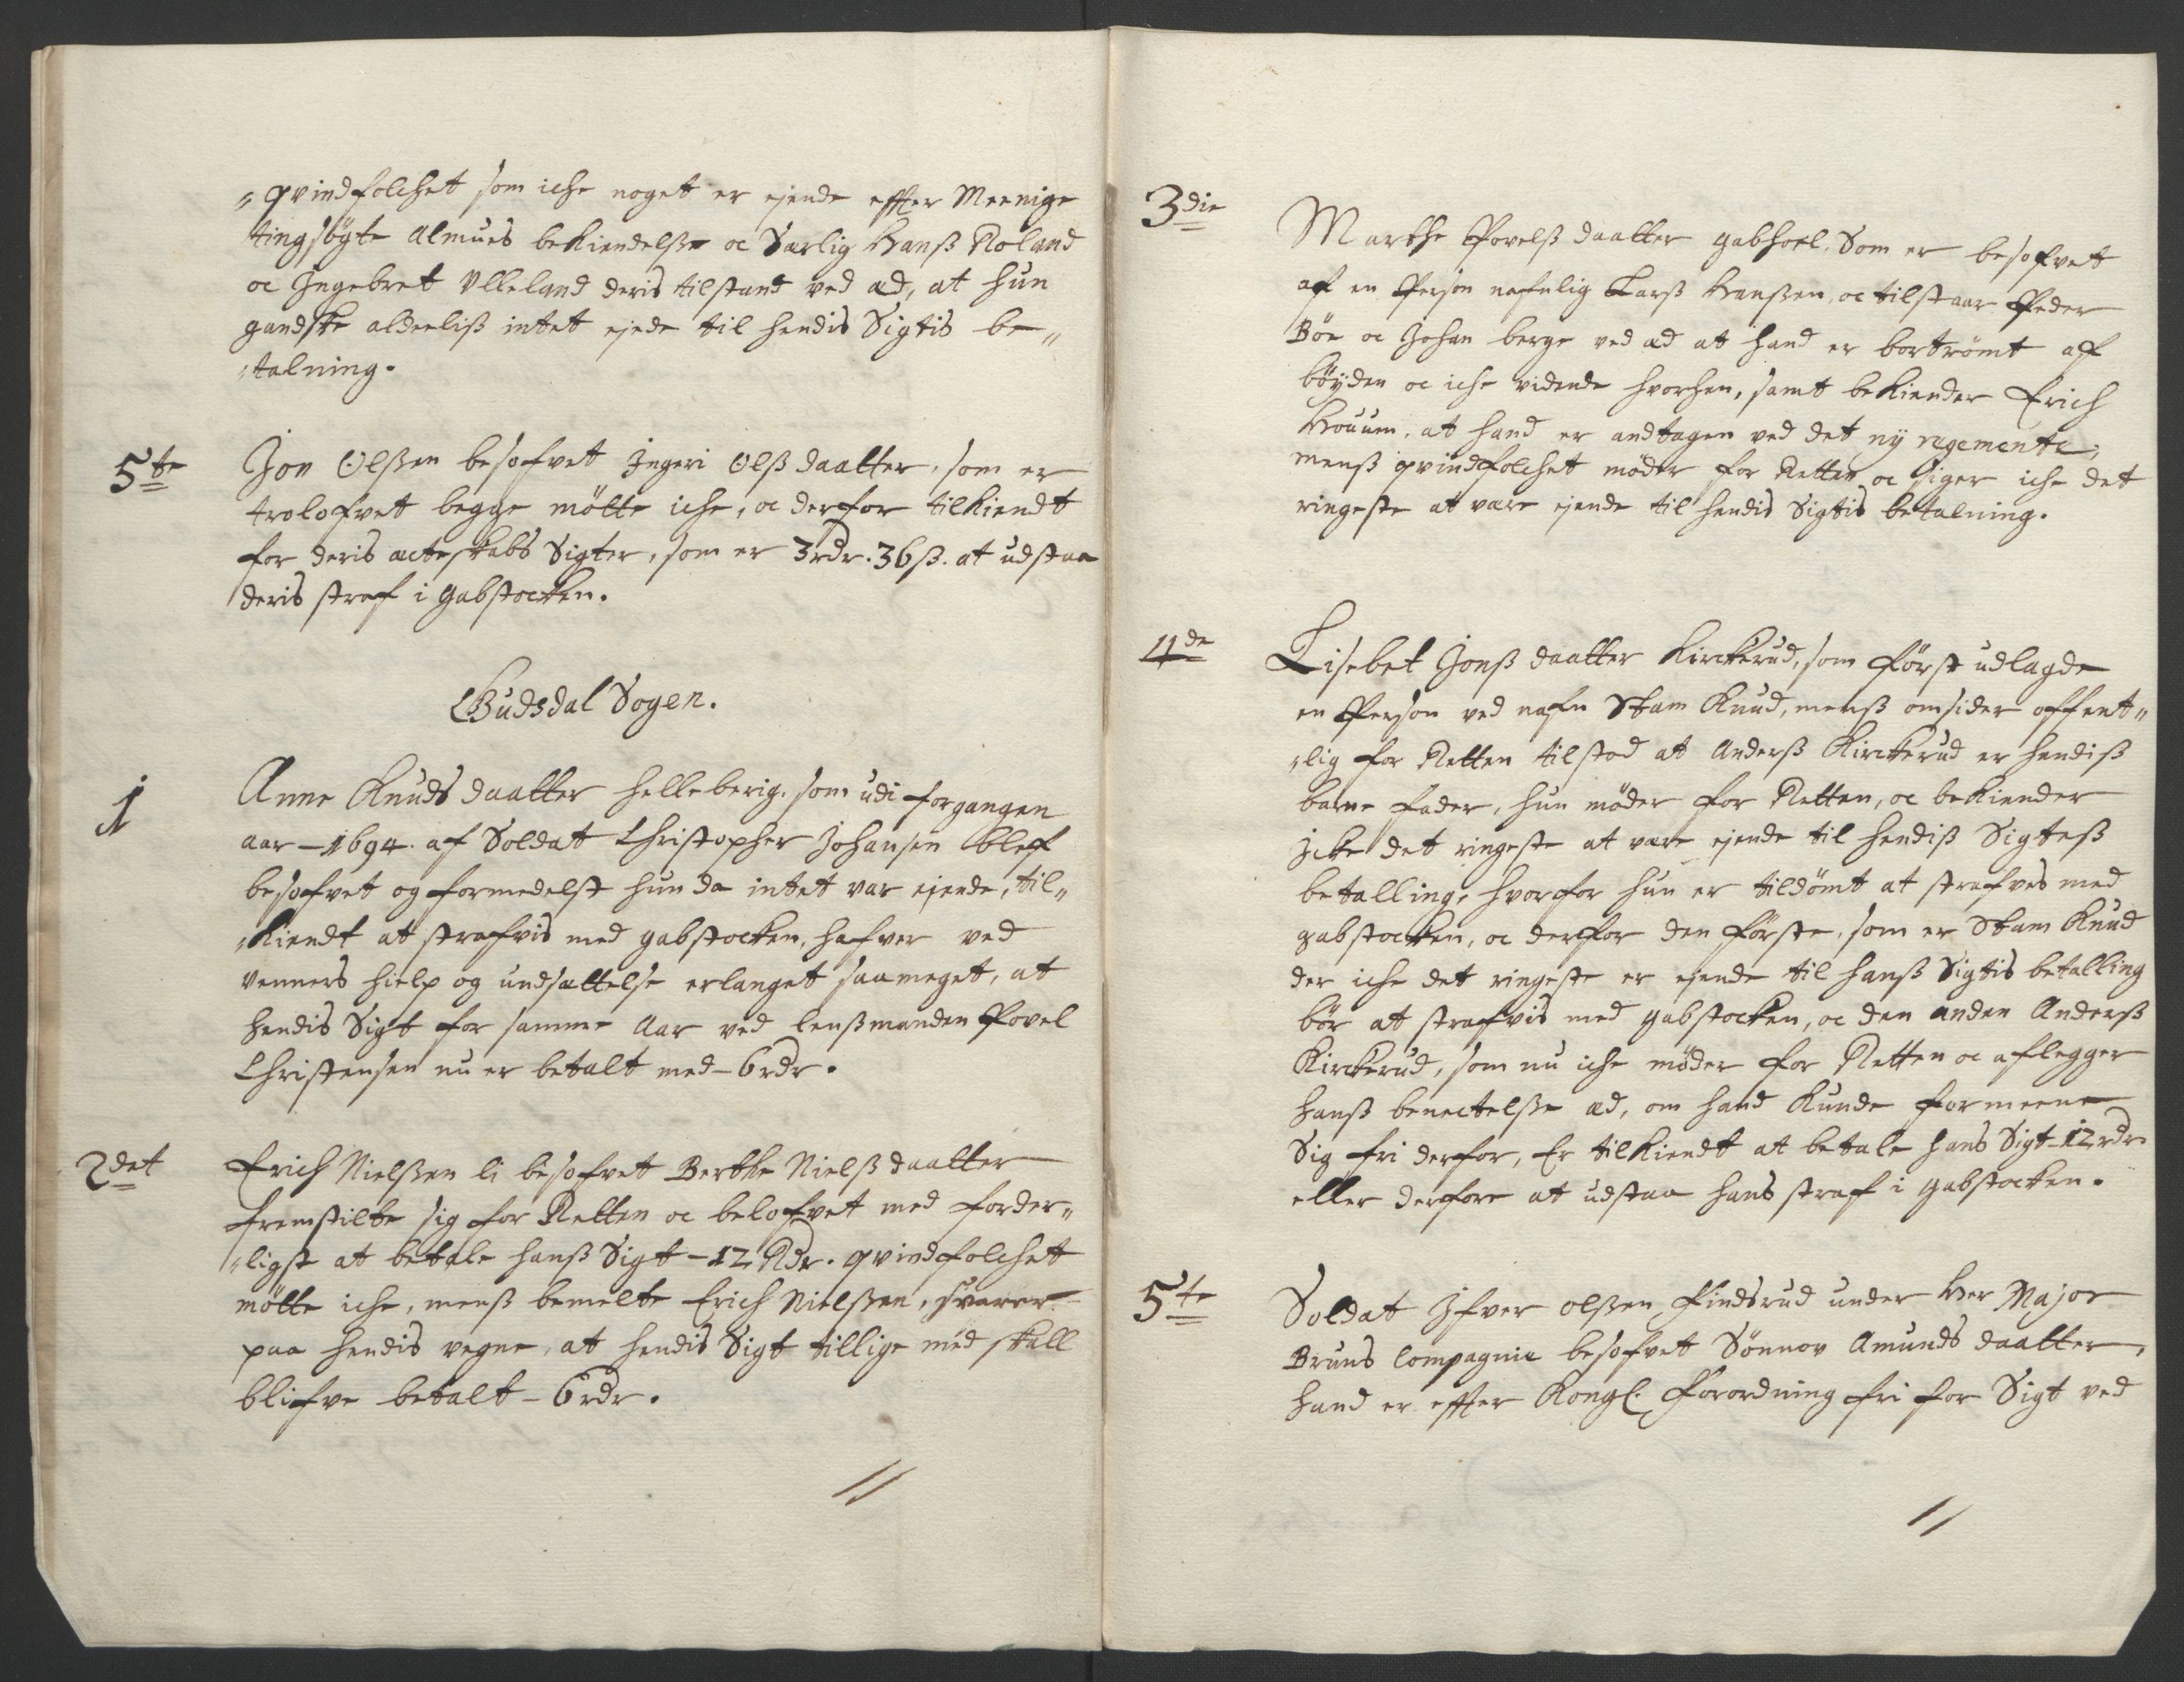 „qvindfolchet som iche noget er ejende effter Meenige
tingsögte Almues bekiendelsse oc Særlig Hanss Roland
oc Ingebret Ulleland deris tilstand ved æd, at hun
gandske aldeeliss intet ejede til hendis Sigtis be„
„talning.
5te Jon Olssen besofvet Ingeri Olss daatter, som er
trolofvet begge mötte iche, oc derfor tilkiendt
for deris ægteskabs Sigter, som er 3 rdr. 36 ß. at udstaa
deris straf i gabstocken.
Gudsdal Sogen.
1 Anne Knuds daatter helleberig, som udi forgangen
aar – 1694. af Soldat Christopher Johansen blef
besofvet og formedelst hun da intet var ejende, til„
„kiendt at strafvis med gabstocken, hafver ved
Venners hielp og undsættelse erlanget saameget, at
hendis Sigt for samme Aar ved lenssmanden Povel
Christensen nu er betalt med – 6 rdr.
2det Erich Nielssen li besofvet Berthe Nielss daatter
fremstilte sig for Retten oc belofvet med forder„
„ligst at betale hanss Sigt – 12 Rdr. qvindfolchet
mötte iche, menss bemelte Erich Nielssen, svarer
paa hendis vegne, at hendis Sigt tillige med skall
blifve betalt – 6 rdr.
//
3die Marthe Povelss daatter gabhoel, Som er besofvet
af en Person nafnlig Larss Hanssen, oc tilstaar Peder
Böe oc Johan berge ved æd at hand er bortrömt af
böyden oc iche vidende hvorhen, samt bekiender Erich
Houum, at hand er andtagen ved det ny regemente,
menss qvindfolchet möder for Retten oc siger iche det
ringeste at være ejende til hendis Sigtis betalning.
4de Lisebet Jonss daatter Kirckerud, som först udlagde
en Person ved nafn Stam Knud, menss omsider offent„
„lig for Retten tilstod at Anderss Kirckerud er hendiss
barne fader, hun möder for Retten, oc bekiender
icke det ringeste at være ejende til hendiss Sigtess
betalling, hvorfor hun er tildömt at strafves med
gabstocken, oc derfor den förste, som er Stam Knud
der iche det ringeste er ejende til hanss Sigtis betalling
bör at strafvis med gabstocken, oc den anden Anderss
Kirckerud, som nu iche möder for Retten oc aflegger
hanss benectelsse æd, om hand kunde formeene
Sig fri derfor, Er tilkiendt at betale hans Sigt – 12 rdr
eller derfore at udstaa hans straf i gabstocken.
5te Soldat Ifver olssen Findsrud under Her Major
Bruns Compagnie besofvet Sönnov Amunds daatter,
hand er effter Kongl. Forordning fri for Sigt ved
//